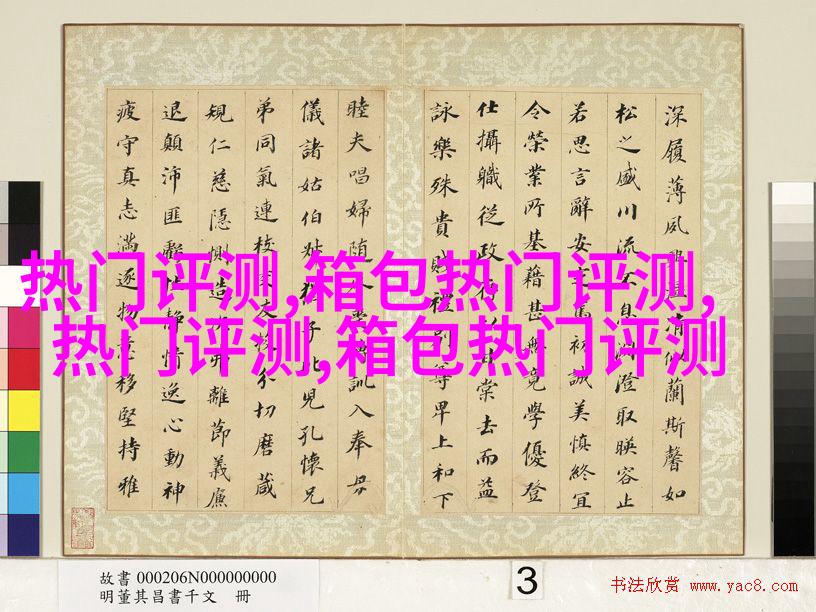 深履薄夙清似蘭斯馨如
松之盛川流不息澄取暎容止
若思言辭安篤初誠美慎終宜
令榮業所基籍甚無竟學優登
仕攝職從政存以甘棠去而益
詠樂殊貴賤禮別尊卑上和下
睦夫唱婦随訓入奉母
儀諸姑伯叔猶子比兒孔懷兄
弟同氣連枝交友投分切磨葴
規仁慈隱惻造次弗離節義廉
退顛沛匪虧性静情逸心動神
疲守真志滿逐物意移堅持雅
热门评测,箱包热门评测,
热门评测,箱包热门评测
故書 000206N000000000
明董其昌書千文 冊
3
书法欣赏 www.yac8.com